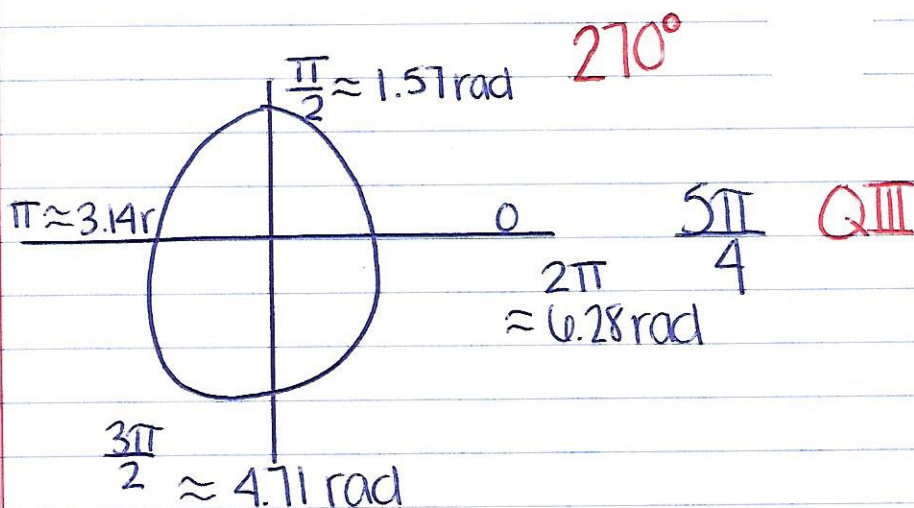 π/2 ≈ 1.57 rad
270°
π ≈ 3.14r
0
5π/4 QIII
2π
≈ 6.28 rad
3π/2 ≈ 4.71 rad